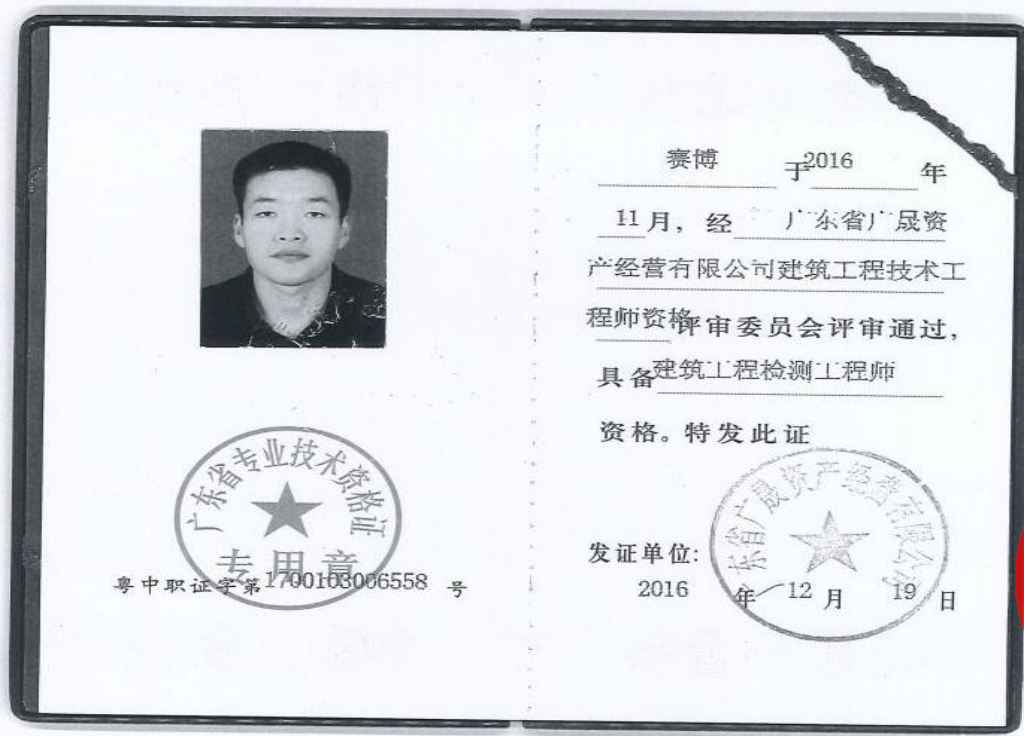 广东省专业技术资格证
专用章
粤中职证字第1700103006558 号
赛博 于2016 年
11月，经 广东省广晟资
产经营有限公司建筑工程技术工
程师资格评审委员会评审通过，
具备建筑工程检测工程师
资格。特发此证
东省广晟资产经营有限公司
发证单位:
2016 年 12 月 19 日